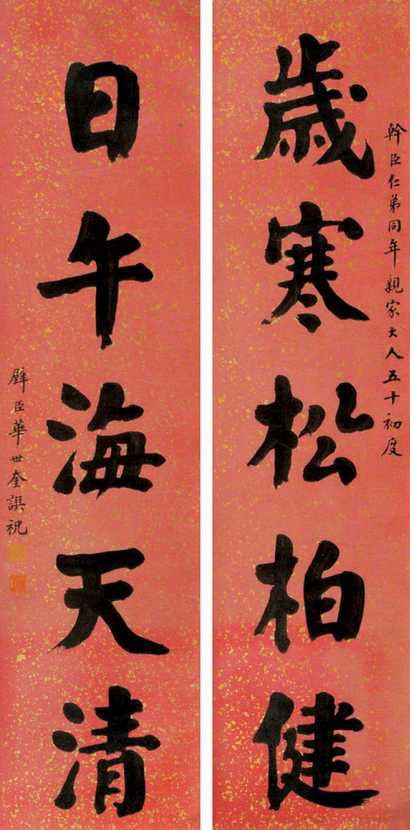 幹臣仁弟同年親家大人五十初度
歲寒松柏健
日午海天清
璧臣華世奎譔祝